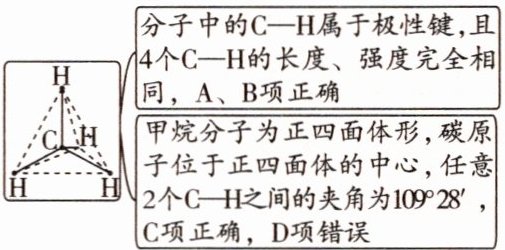 分子中的C—H属于极性键,且
4个C—H的长度、强度完全相
同，A、B项正确
H
C H
H H
甲烷分子为正四面体形,碳原
子位于正四面体的中心,任意
2个C—H之间的夹角为109°28′,
C项正确，D项错误